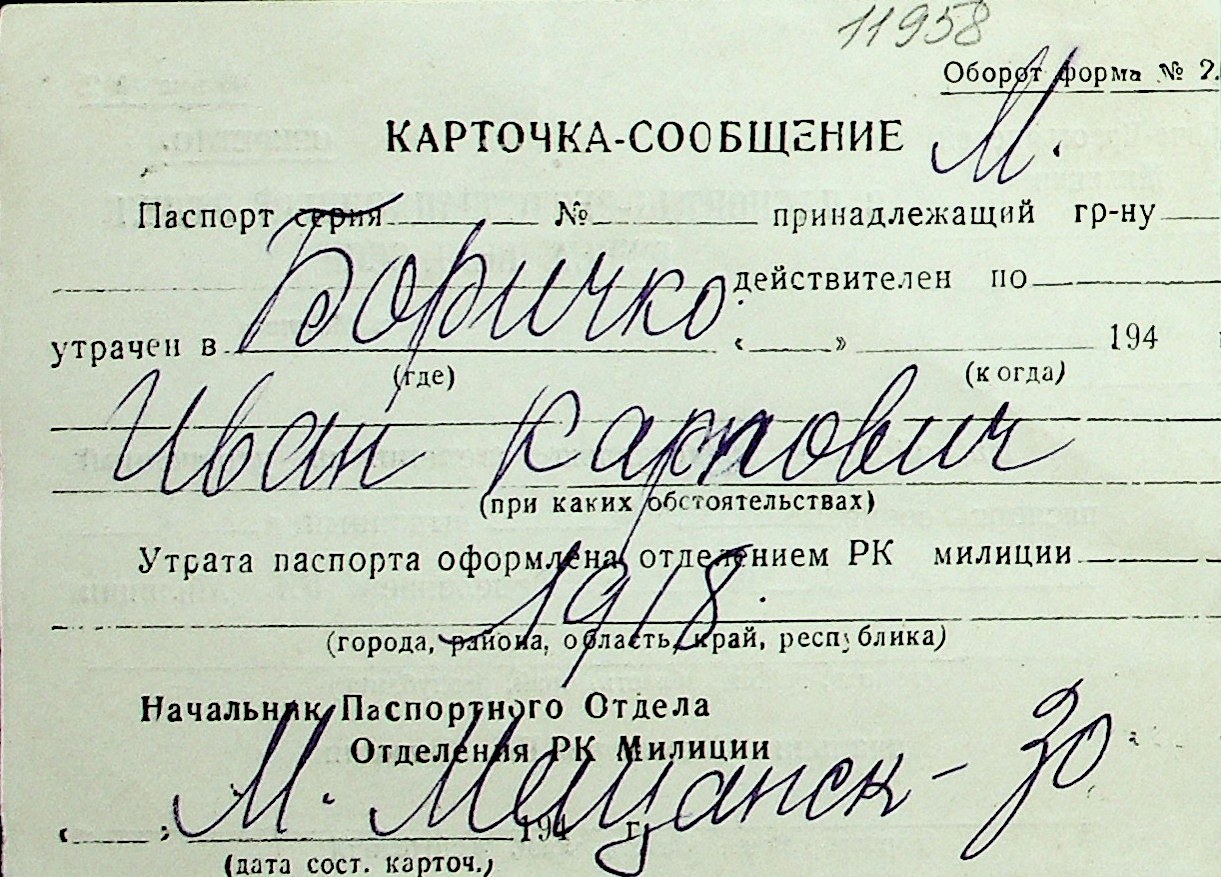 11958
Оборот форма № 2.
КАРТОЧКА-СООБЩЕНИЕ М.
Паспорт серия № принадлежащий гр-ну
Боричко действителен по
утрачен в « » 194
(где) (когда)
Иван Карпович
(при каких обстоятельствах)
Утрата паспорта оформлена отделением РК милиции
1918.
(города, района, область, край, республика)
Начальник Паспортного Отдела
Отделения РК Милиции
М. Мещанск - 30
« » 194 г.
(дата сост. карточ.)